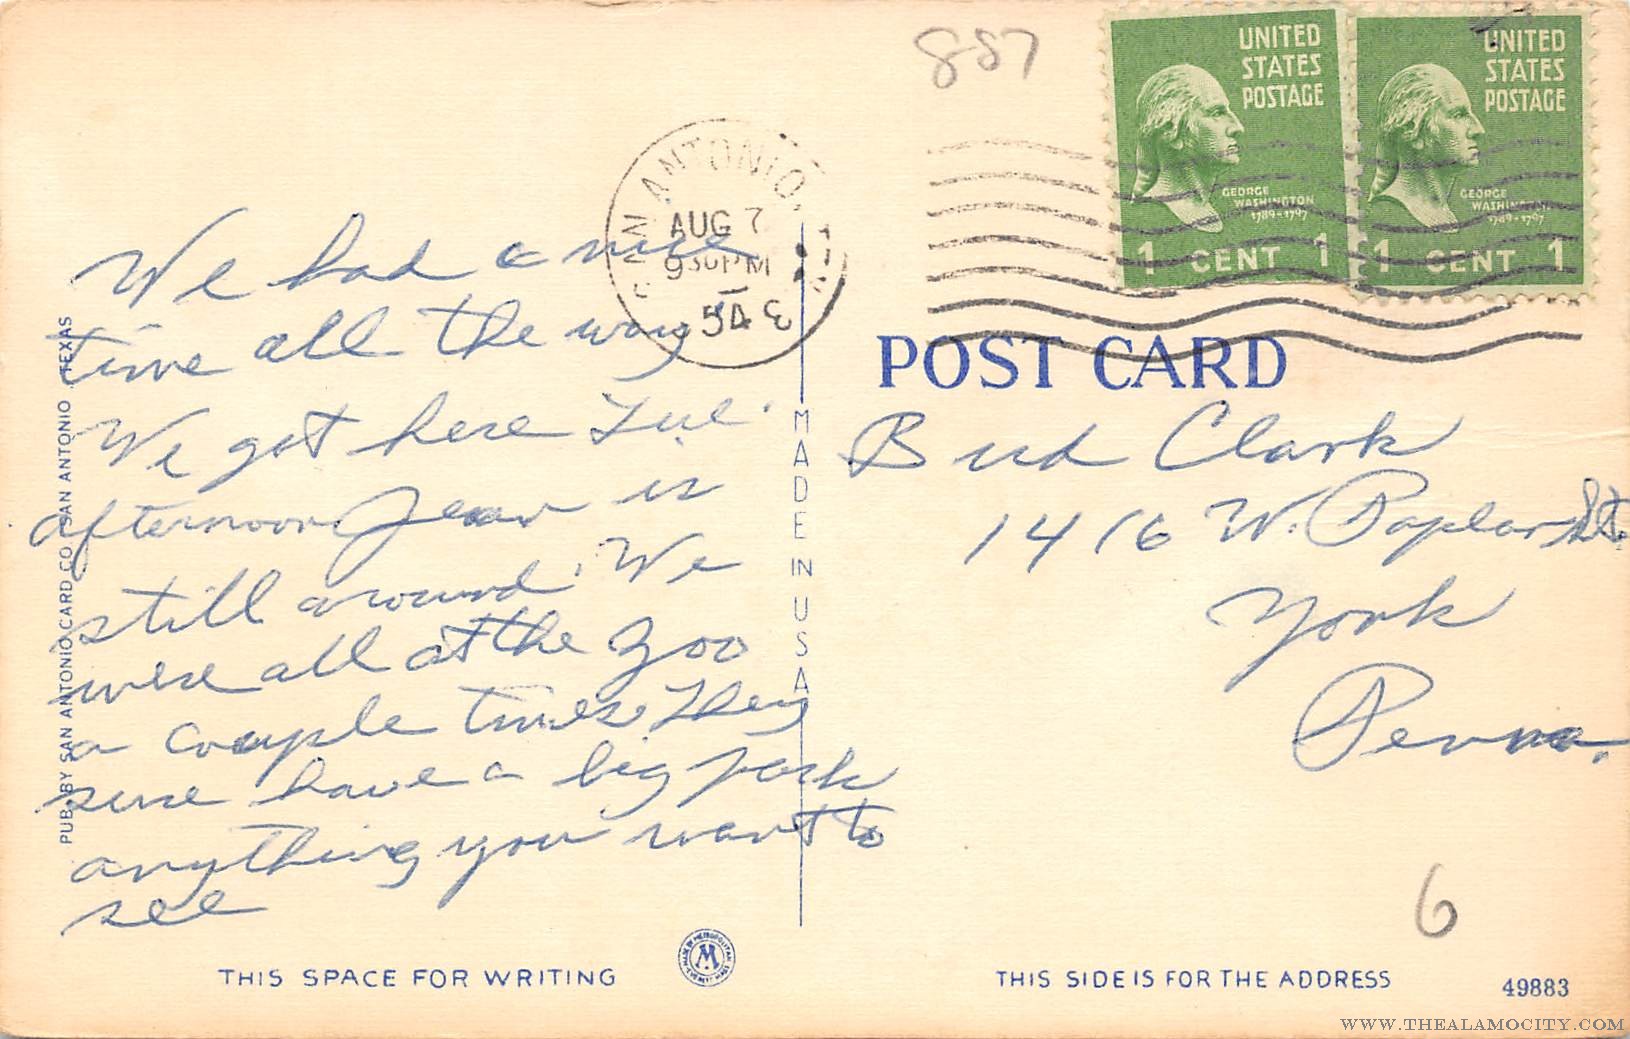 887
UNITED
STATES
POSTAGE
GEORGE
WASHINGTON
1789-1797
1 CENT 1
UNITED
STATES
POSTAGE
GEORGE
WASHINGTON
1789-1797
1 CENT 1
SAN ANTONIO, TEX.
AUG 7
930 PM
54
POST CARD
We had a nice
time all the way
We got here Tue.
afternoon Jean is
still around. We
were all at the Zoo
a couple times. They
sure have a big park
anything you want to
see
Bud Clark
1416 W. Poplar St.
York
Penna.
PUB. BY SAN ANTONIO CARD CO. SAN ANTONIO, TEXAS
MADE IN U S A
6
THIS SPACE FOR WRITING
MADE BY METROPOLITAN
M
EVERETT MASS
THIS SIDE IS FOR THE ADDRESS
49883
WWW.THEALAMOCITY.COM